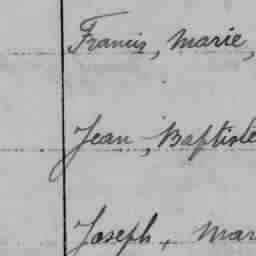 Francis, Marie,
Jean, Baptiste
Joseph, Mar